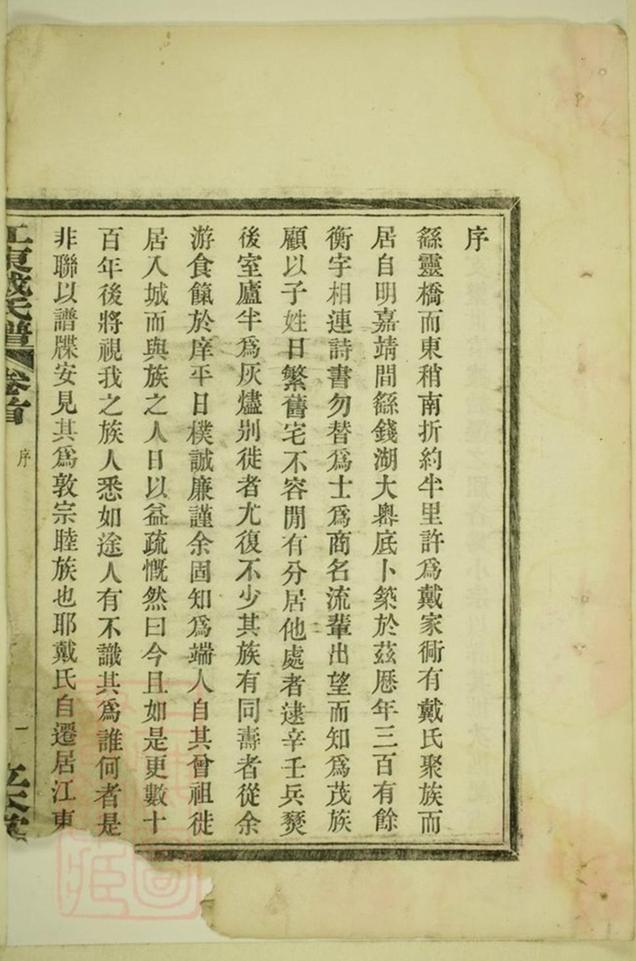 序
繇靈橋而東稍南折約半里許爲戴家衕有戴氏聚族而
居自明嘉靖間繇錢湖大嶴底卜築於茲厯年三百有餘
衡宇相連詩書勿替爲士爲商名流輩出望而知爲茂族
顧以子姓日繁舊宅不容閒有分居他處者逮辛壬兵燹
後室廬半爲灰燼别徙者尤復不少其族有同壽者從余
游食餼於庠平日樸誠廉謹余固知爲端人自其曾祖徙
居入城而與族之人日以益疏慨然曰今且如是更數十
百年後將視我之族人悉如途人有不識其爲誰何者是
非聯以譜牒安見其爲敦宗睦族也耶戴氏自遷居江東
江東戴氏譜 卷首
序
一